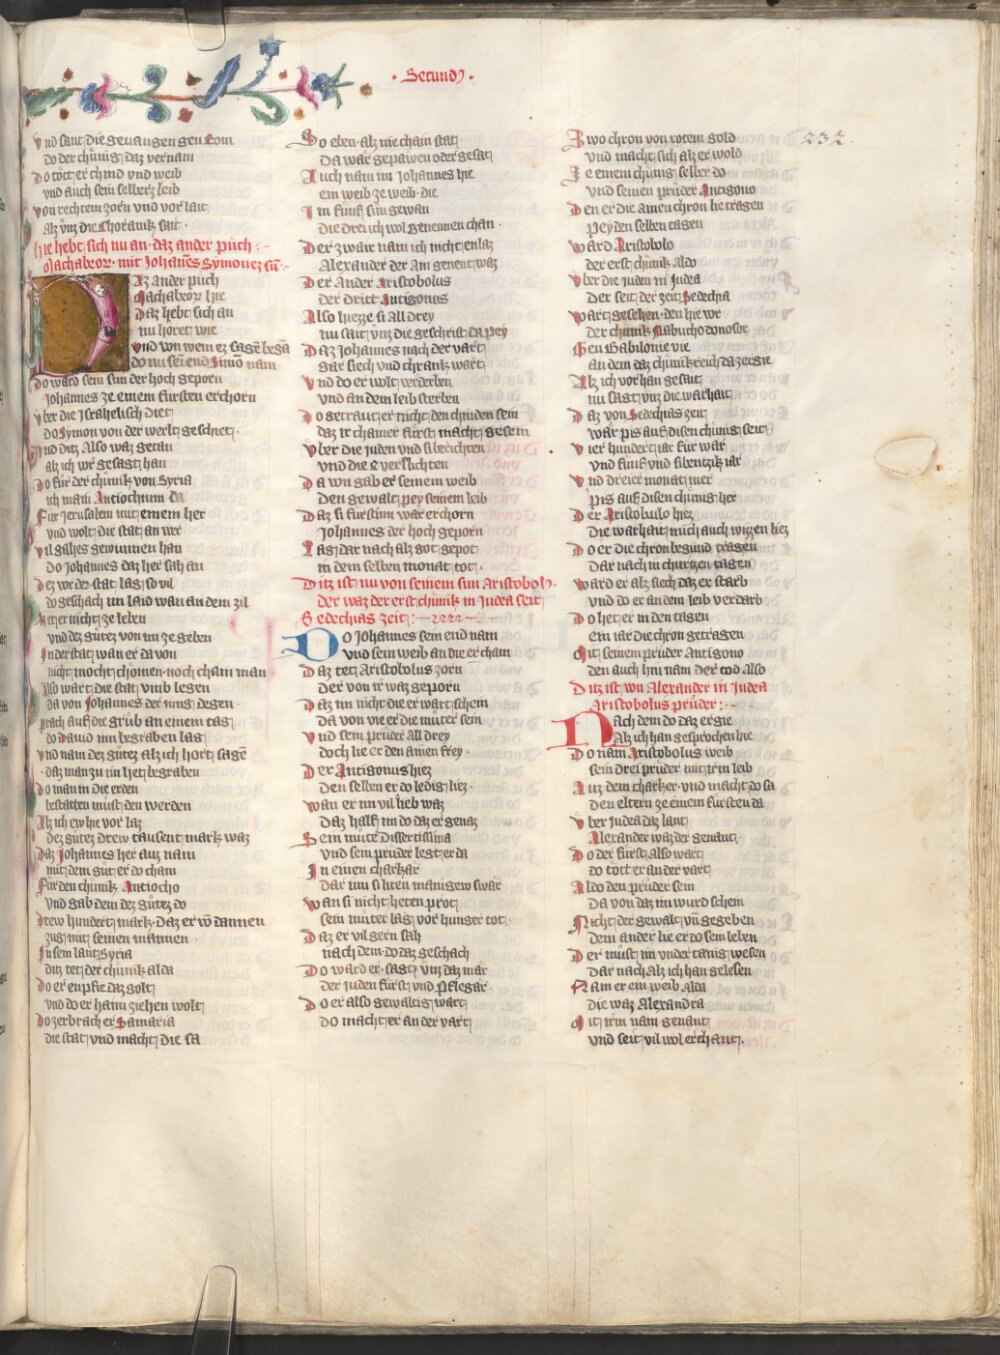 · Secund9 ·
232
vnd sant die geuangen gen Rom
do der chünig daz vernam
Do tott er chind vnd weib
vnd auch sein selbers leib
von rechtem zorn vnd vor lait
alz vnz die Choranik sait
hie hebt sich nu an· daz ander puch :
Machabeor· mit Johanēs Symonez sū
Daz ander puch
Machabeor hie
Daz hebt sich an
nu horet wie
vnd vō wem ez sagē begā
do nu sei end Simō nam
Do ward sein sun der hoch geporn
Johannes ze einem fursten erchorn
vber die Israhelisch diet
do Symon von der werlt geschiet·
vnd ditz also waz getan
alz ich vor gesagt han
Do für der chünik von Syria
ich main Antiochum da
Für Jerusalem mit einem her
vnd wolt die stat an wer
vil gahes gewinnen han
do Johannes daz her sah an
Dez vor der stat lag so vil
do geschach im laid wan an dem zil
het er nicht ze leben
vnd dez gütez von im ze geben
Jn der stat wan er da von
nicht mocht chomen noch cham man
Also wart die stat vmb legen
da von Johannes der iung degen
prach auf die grüb an einem tag
do Dauid inn begraben lag
vnd nam dez gütez alz ich hort sagē
daz man zu im het begraben
Do man in die erden
bestatten müst den werden
Alz ich ew hie vor laz
dez gutez drew tausent mark waz
Daz Johannes her auz nam
mit dem güt er do cham
Fur den chünik Antiocho
vnd gab dem dez gütez do
drew hundert mark· daz er vō dannen
zug mit seinen mannen
Jn sein lant Syria
ditz tet der chünik alda
Do er enpfie daz golt
vnd do er haim ziehen wolt
Do zerbrach er Samaria
die stat vnd macht die sa
So eben alz nie chain stat
da war gepawen oder gesat
Auch nam im Johannes hie
ein weib ze weib· die
Jm funf sün gewan
die drei ich wol genennen chan·
Der zwair nam ich nicht enlaz
Alexander der ain genent waz
Der ander Aristobolus
der dritt Antigonus
Also hiezz si all drey
nu sait vnz die geschrift da pey
Daz Johannes nach der vart
gar siech vnd chrank wart
vnd do er wolt verderben
vnd an dem leib sterben
Do getraut er nicht den chinden sein
daz ir chainer fürst macht gesein
vber die juden vnd si berichten
vnd die E verslichten
Da von gab er seinem weib
den gewalt pey seinem leib
Daz si fürstinn war erchorn
Johannes der hoch geporn
Lag dar nach alz got gepot
in dem selben monat tot·
Ditz ist nu von seinem sun Aristobolo·
der waz der erst chünik in Judea seit
Sedechias zeit :
Do Johannes sein end nam
vnd sein weib an die er cham
Daz tet Aristobolus zorn
der von ir waz geporn
Daz im nicht die er wart schein
da von vie er die müter sein
vnd sein prüder all drey
doch lie er den ainen frey·
Der Antigonus hiez
den selben er do ledig liez·
wan er im vil lieb waz
daz half im do daz er genaz
Sein müter Dissertissima
vnd sein prüder legt er da
Jn einen charkar
dar inn si liten manigew swar
wan si nicht heten prot
sein müter lag vor hunger tot·
Daz er vil gern sah
nach dem do daz geschach
Do ward er sagt vnz daz mar
der Juden fürst vnd pflegar·
Do er also gewaltig wart
do macht er an der vart
Zwo chron von rotem gold
vnd macht sich alz er wold
Ze einem chünig selber do
vnd seinen prüder Antigono
Den er die ainen chron lie tragen
pey den selben tagen
ward Aristobolo
der erst chünik aldo
vber die juden in Judea
Der seit der zeit Sedechia
wart gesehen den hie vor
der chünik Nabuchodonosor
Gen Babilonie vie
an dem daz chünikreich da zergie
Alz ich vor han gesait
nu sagt vnz die warhait
Daz von Sedechias zeit
wär pis auf disen chünig seit
vier hundert iar für war
vnd fünf vnd sibentzik iar
vnd dreier monat mer
pis auf disen chünig her
Der Aristobulo hiez
die warhait mich auch wizzen liez
Do er die chron begund tragen
dar nach in churtzen tagen
ward er alz siech daz er starb
vnd do er an dem leib verdarb
Do het er in den tagen
ein iar die chron getragen
Mit seinem prüder Antigono
den auch hin nam der tod also
Ditz ist von Alexander in Judea
Aristobolus prüder :
Nach dem do daz ergie
Alz ich han gesprochen hie
Do nam Aristobolus weib
sein drei prüder mit irm leib
Auz dem charker· vnd macht do sa
den eltern ze einem fürsten da
vber Judea daz lant
Alexander waz der genant·
Do der fürst also wart
do tott er an der vart
Aldo den prüder sein
Da von daz im wurd schein
Nicht der gewalt vn̄ gegeben
dem ander lie er do sein leben
Der müst im vndertänig wesen
dar nach alz ich han gelesen
Nam er ein weib alda
die waz Alexandra
Mit irm nam genant
vnd seit vil wol erchant·